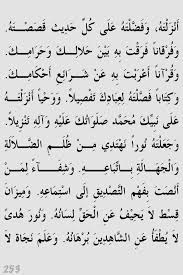 أَنْزَلْتَهُ، وَفَضَّلْتَهُ عَلَى كُلِّ حَدِيثٍ قَصَصْتَهُ.
وَفُرْقَاناً فَرَقْتَ بِهِ بَيْنَ حَلَالِكَ وَحَرَامِكَ.
وَقُرْآناً أَعْرَبْتَ بِهِ عَنْ شَرَائِعِ أَحْكَامِكَ.
وَكِتَاباً فَصَّلْتَهُ لِعِبَادِكَ تَفْصِيلاً. وَوَحْياً أَنْزَلْتَهُ
عَلَى نَبِيِّكَ مُحَمَّدٍ صَلَوَاتُكَ عَلَيْهِ وَآلِهِ تَنْزِيلاً.
وَجَعَلْتَهُ نُوراً نَهْتَدِي مِنْ ظُلَمِ الضَّلَالَةِ
وَالْجَهَالَةِ بِاتِّبَاعِهِ. وَشِفَاءً لِمَنْ
أَنْصَتَ بِفَهْمِ التَّصْدِيقِ إِلَى اسْتِمَاعِهِ. وَمِيزَانَ
قِسْطٍ لَا يَحِيفُ عَنِ الْحَقِّ لِسَانُهُ. وَنُورَ هُدًى
لَا يُطْفَأُ عَنِ الشَّاهِدِينَ بُرْهَانُهُ. وَعَلَمَ نَجَاةٍ لَا
253